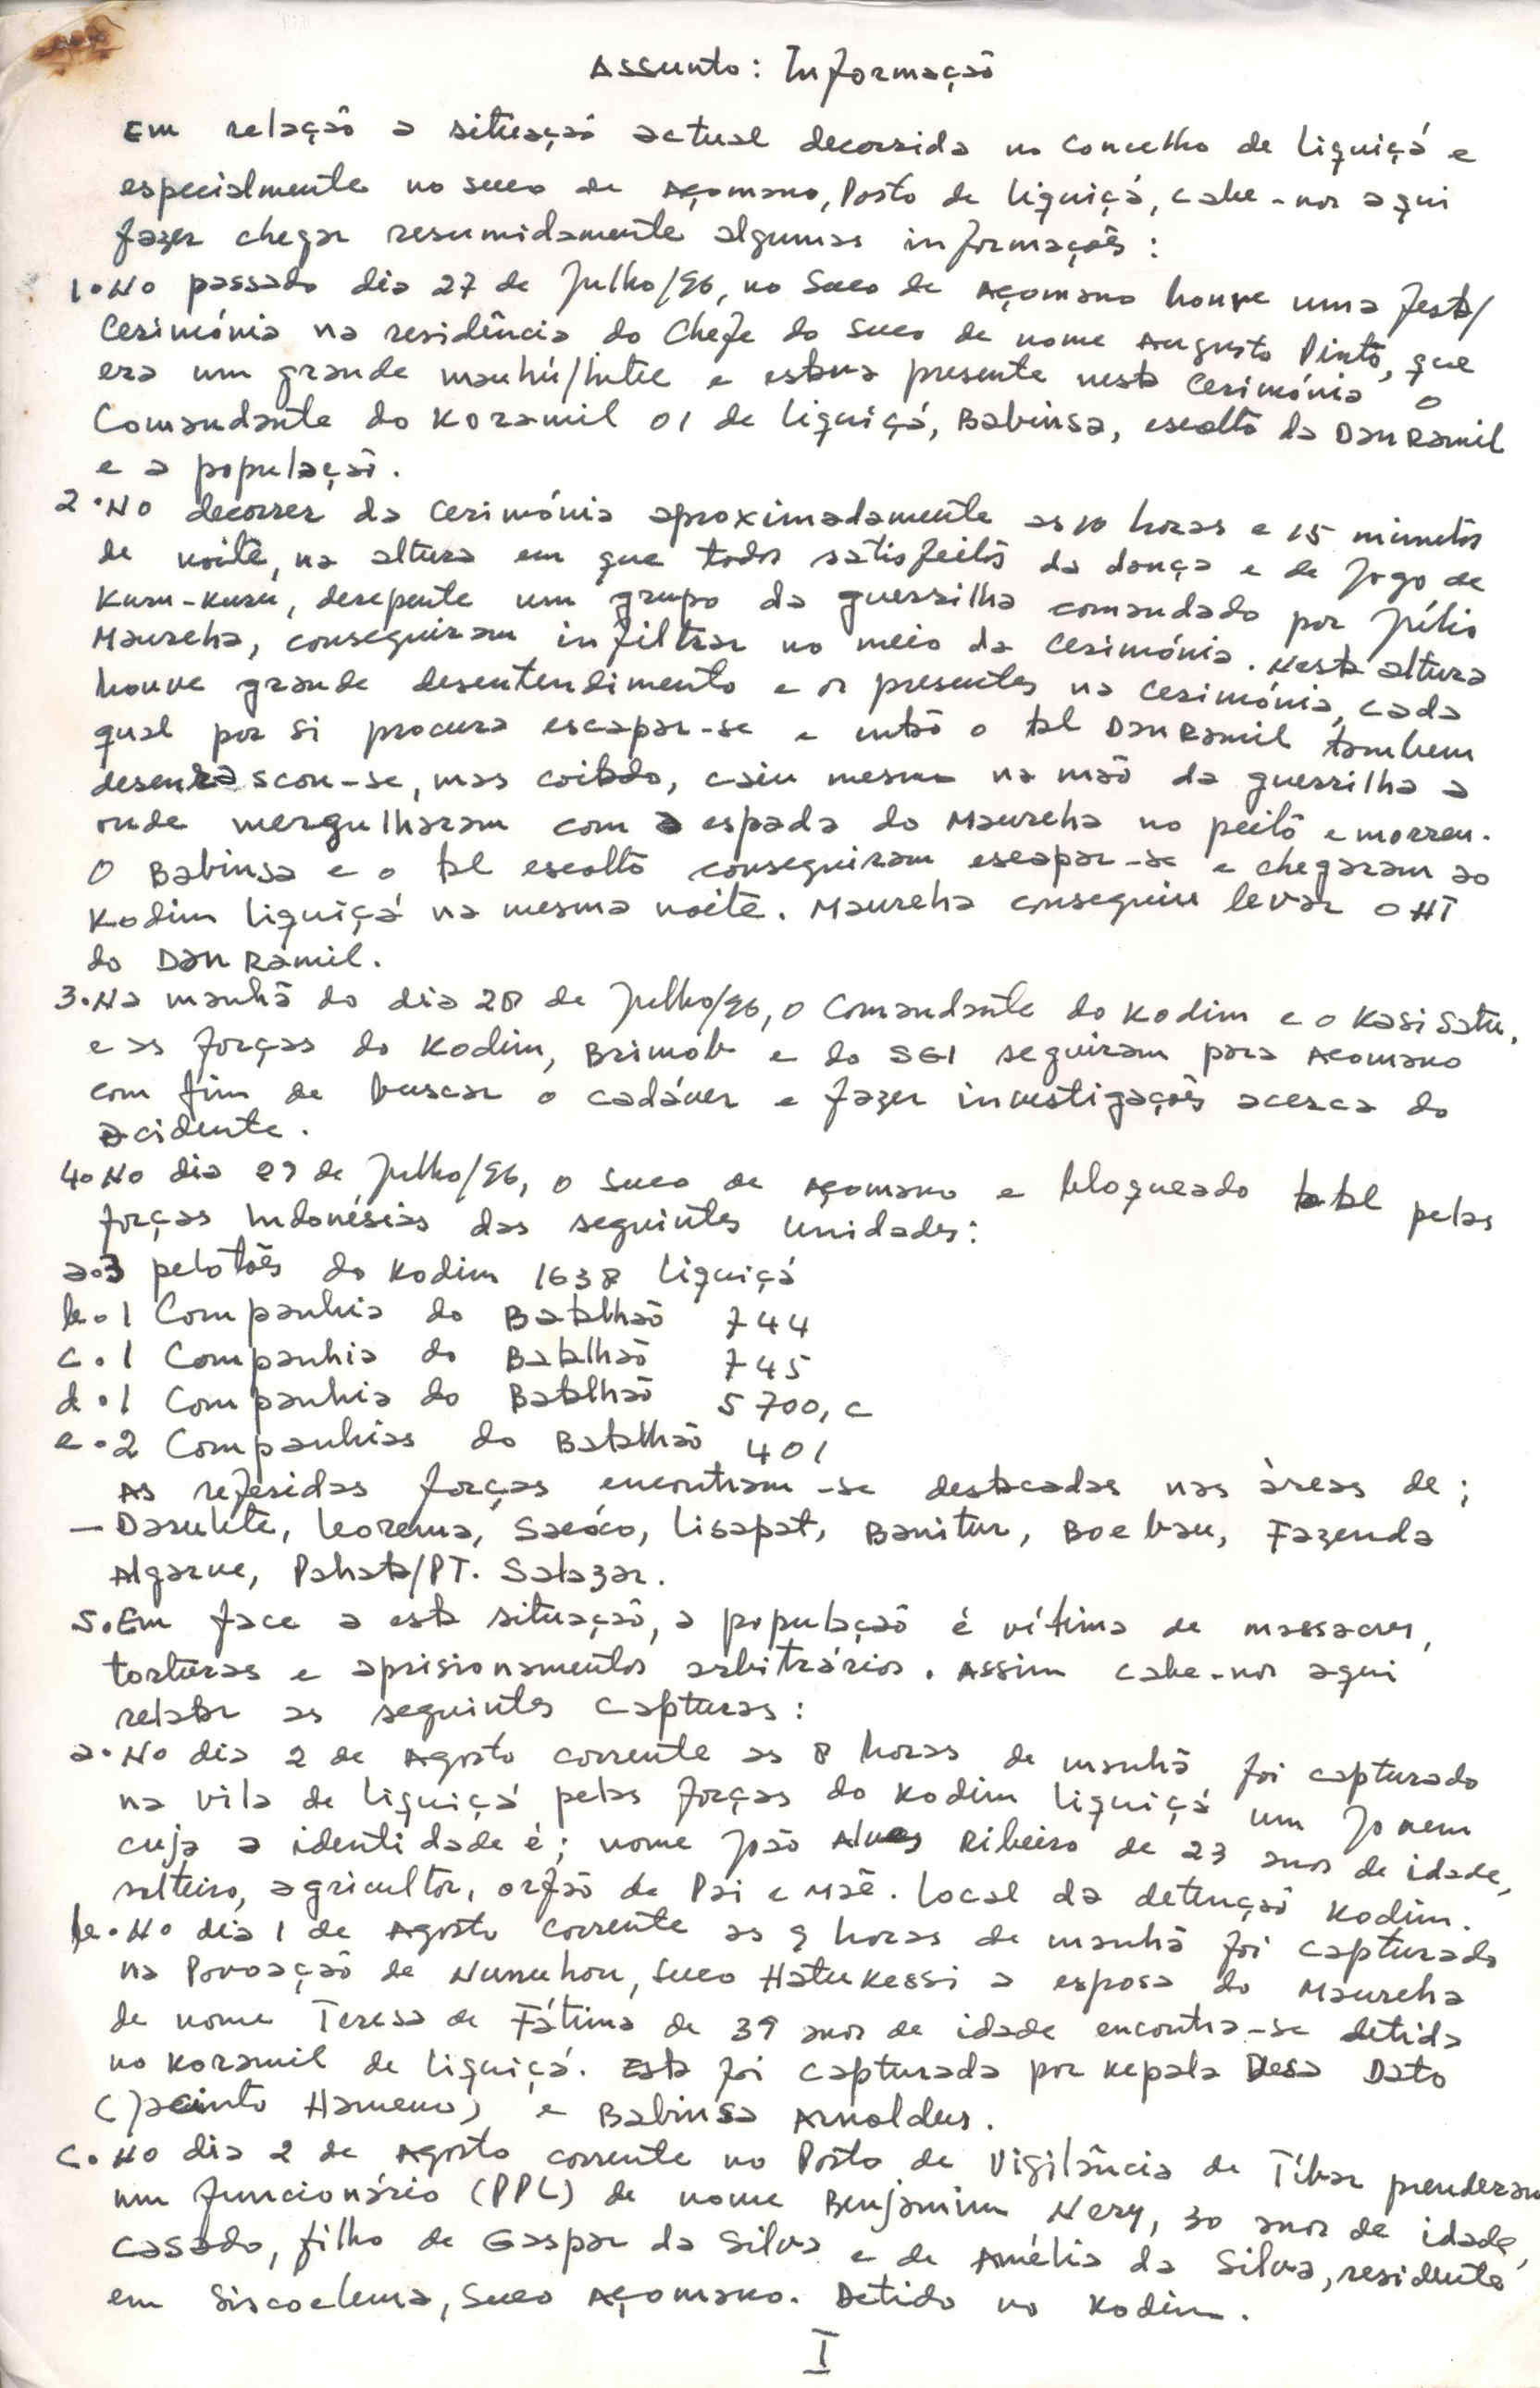 Assunto: Informação
Em relação a situação actual decorrida no Concelho de Liquiçá e
especialmente no suco de Açomano, Posto de Liquiçá, cabe-nos aqui
fazer chegar resumidamente algumas informações:
1. No passado dia 27 de Julho/96, no Suco de Açomano houve uma festa/
Cerimónia na residência do Chefe do Suco de nome Augusto Pinto, que
era um grande mauhú/intel e estava presente nesta Cerimónia o
Comandante do Koramil 01 de Liquiçá, Babinsa, escolto da DanRamil
e a população.
2. No decorrer da Cerimónia aproximadamente as 10 horas e 15 minutos
de noite, na altura em que todos satisfeitos da dança e de Jogo de
Kuru-Kuru, derepente um grupo da guerrilha comandado por Júlio
Maureha, conseguiram infiltrar no meio da Cerimónia. Nesta altura
houve grande desentendimento e os presentes na Cerimónia, cada
qual por si procura escapar-se e então o tal DanRamil tambem
desenrascou-se, mas coitado, caiu mesmo na mão da guerrilha a
onde mergulharam com a espada do Maureha no peito e morreu.
O Babinsa e o tal escolto conseguiram escapar-se e chegaram ao
Kodim Liquiçá na mesma noite. Maureha conseguiu levar o HT
do DanRamil.
3. Na manhã do dia 28 de Julho/96, o Comandante do Kodim e o Kasi Satu,
e as forças do Kodim, Brimob e do SGI seguiram para Açomano
com fim de buscar o cadáver e fazer investigações acerca do
acidente.
4. No dia 29 de Julho/96, o Suco de Açomano e bloqueado total pelas
forças Indonésias das seguintes Unidades:
a. 3 pelotões do Kodim 1638 Liquiçá
b. 1 Companhia do Batalhão 744
c. 1 Companhia do Batalhão 745
d. 1 Companhia do Batalhão 5700, C
e. 2 Companhias do Batalhão 401
As referidas forças encontram-se destacadas nas àreas de;
— Darulete, Leorema, Lisapat, Banitur, Boebau, Fazenda
Algarve, Pahata/PT. Salazar.
5. Em face a esta situação, a população é vítima de massacres,
torturas e aprisionamentos arbitrários. Assim cabe-nos aqui
relatar as seguintes Capturas:
a. No dia 2 de Agosto corrente as 8 horas de manhã foi capturado
na vila de Liquiçá pelas forças do Kodim Liquiçá um Jovem
cuja a identidade é; nome João Alves Ribeiro de 23 anos de idade,
solteiro, agricultor, orfão de Pai e Mãe. Local da detenção Kodim.
b. No dia 1 de Agosto Corrente as 9 horas de manhã foi capturado
na Povoação de Nunuhou, Suco Hatukessi a esposa do Maureha
de nome Teresa de Fátima de 39 anos de idade encontra-se detida
no Koramil de Liquiçá. Esta foi capturada por Kepala Desa Dato
(Jacinto Hameno) e Babinsa Arnoldus.
C. No dia 2 de Agosto corrente no Posto de Vigilância de Tíbar prenderam
um funcionário (PPL) de nome Benjamim Nery, 30 anos de idade,
casado, filho de Gaspar da Silva e de Amélia da Silva, residente
em Siscoelema, Suco Açomano. Detido no Kodim.
I